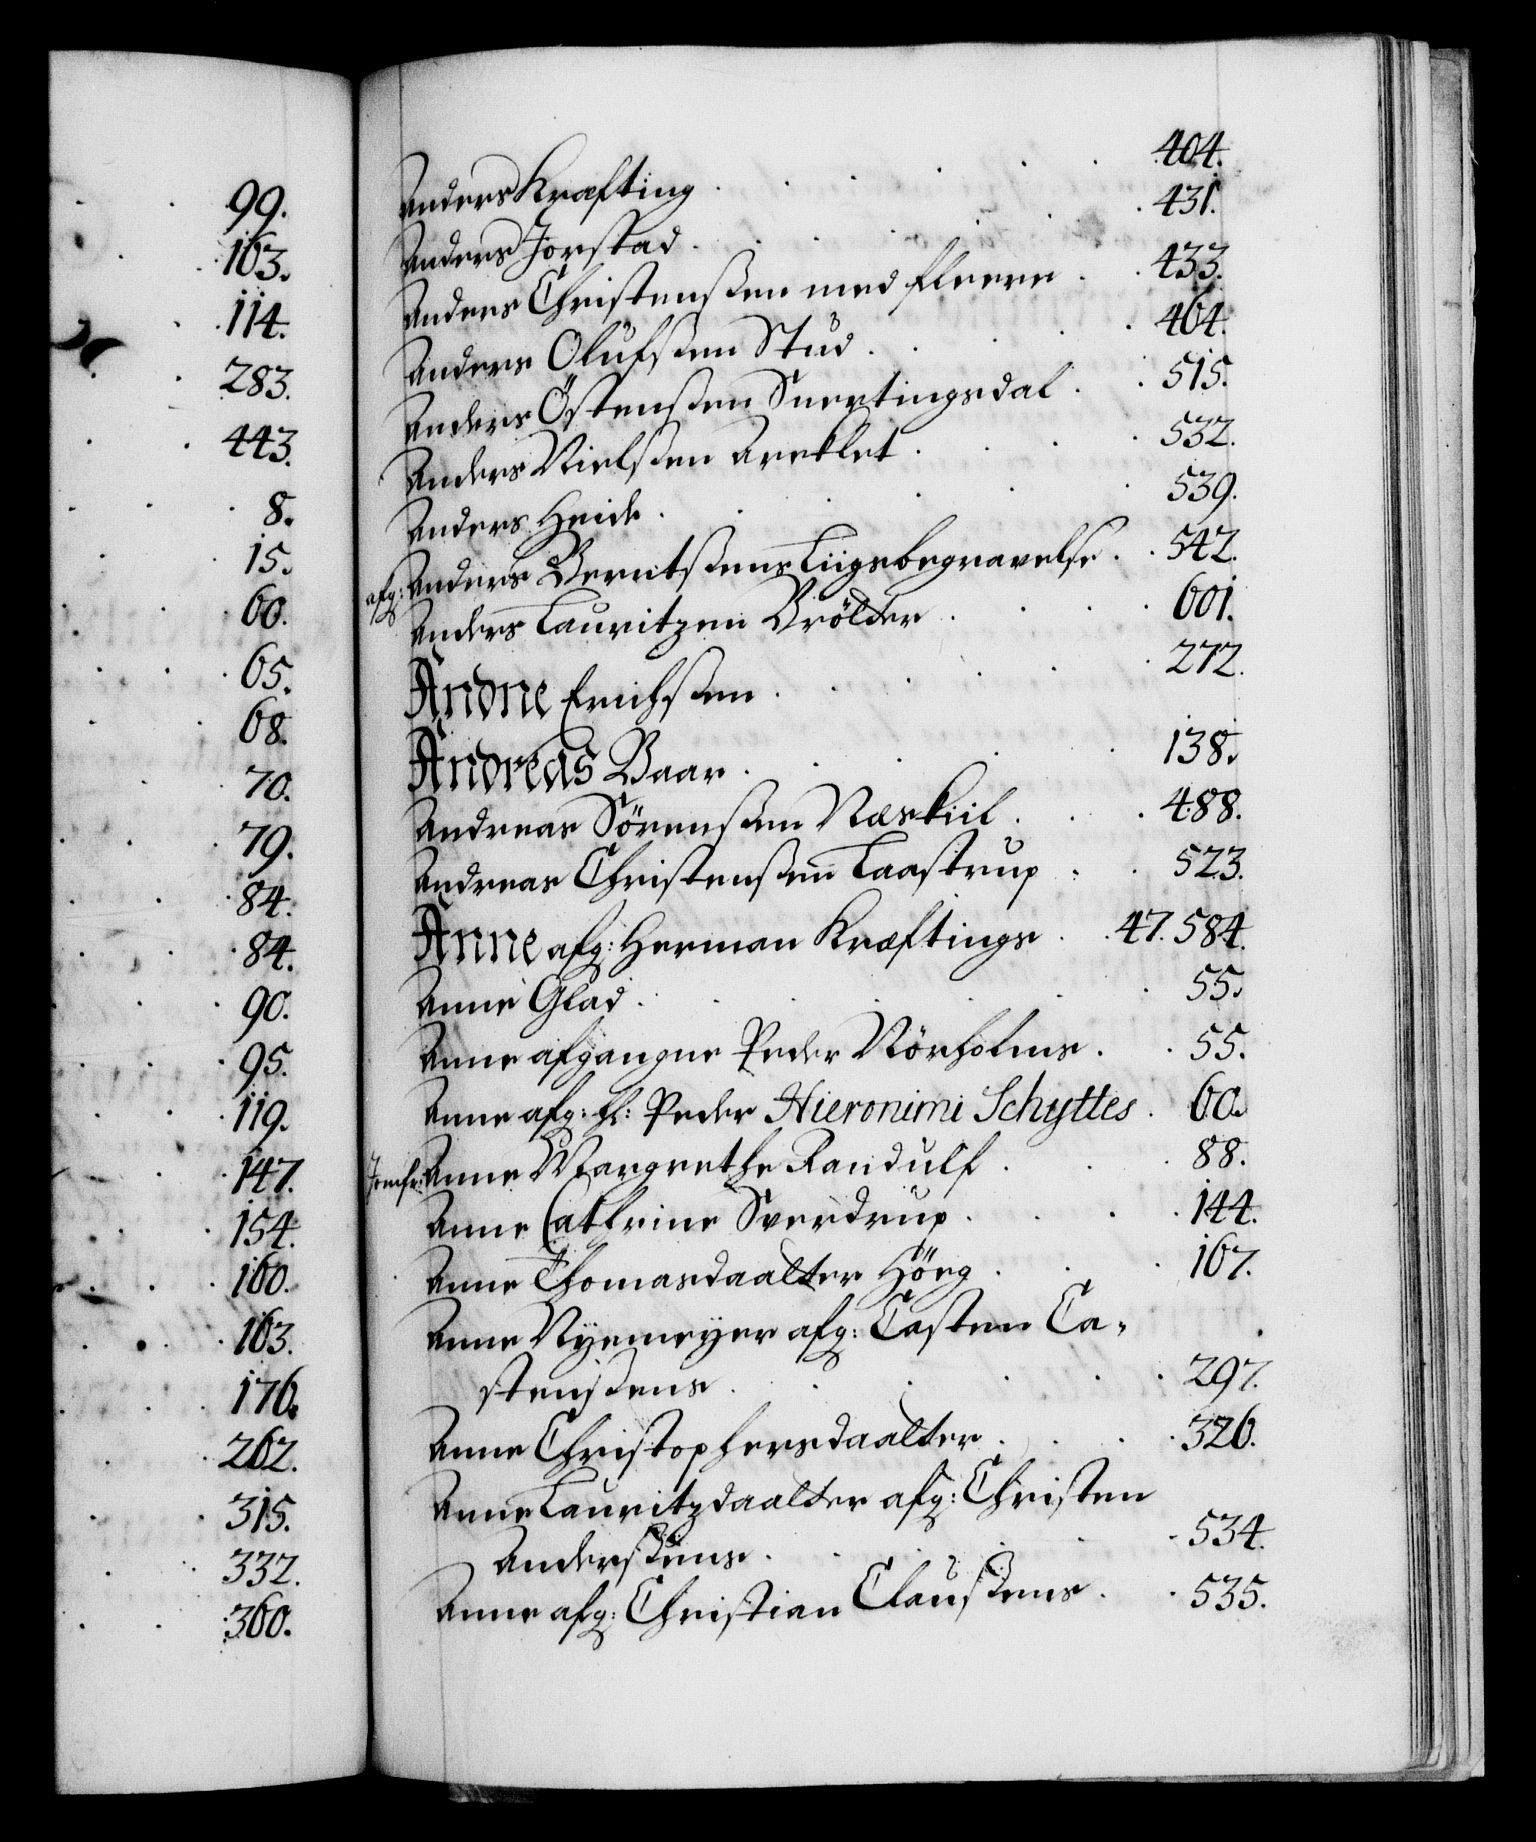 99.
163.
114.
283.
443.
8.
15.
60.
65.
68.
70.
79.
84.
84.
90.
95.
119.
147.
154.
160.
163.
176.
262.
315.
332.
360.
Anders Kræfting . . . . . 404.
Anders Jorstad . . . . . 431.
Anders Christenßen med fleere . . 433.
Anders Olufsßen Stud . . . . 464.
Anders Östenßen Snertingsdal . . 515.
Anders Nielsßen Areklet . . . . 532.
Anders Heide . . . . . 539.
afg: Anders Berntsßens Liigsbegravelse . . 542.
Anders Lauritzen Brölter . . . 601.
Andne Erichsßen . . . . . 272.
Andreas Baar . . . . . 138.
Andreas Sörenßen Næskiil . . . 488.
Andreas Christenßen Taastrup . . 523.
Anne afg: Herman Kræftings . . 47. 584.
Anne Glad . . . . . 55.
Anne afgangne Peder Nörholms . . 55.
Anne afg: H: Peder Hieronimi Schyttes . 60.
Jomfr: Anne Margrethe Randulf . . . 88.
Anne Cathrine Sverdrup . . . . 144.
Anne Thomasdaatter Höeg . . . 167.
Anne Nyemeyer afg: Casten Ca-
stenßens . . . . . 297.
Anne Christophersdaatter . . . 326.
Anne Lauritzdaatter afg: Christen
Andersßens . . . . . 534.
Anne afg: Christian Claußens . . 535.